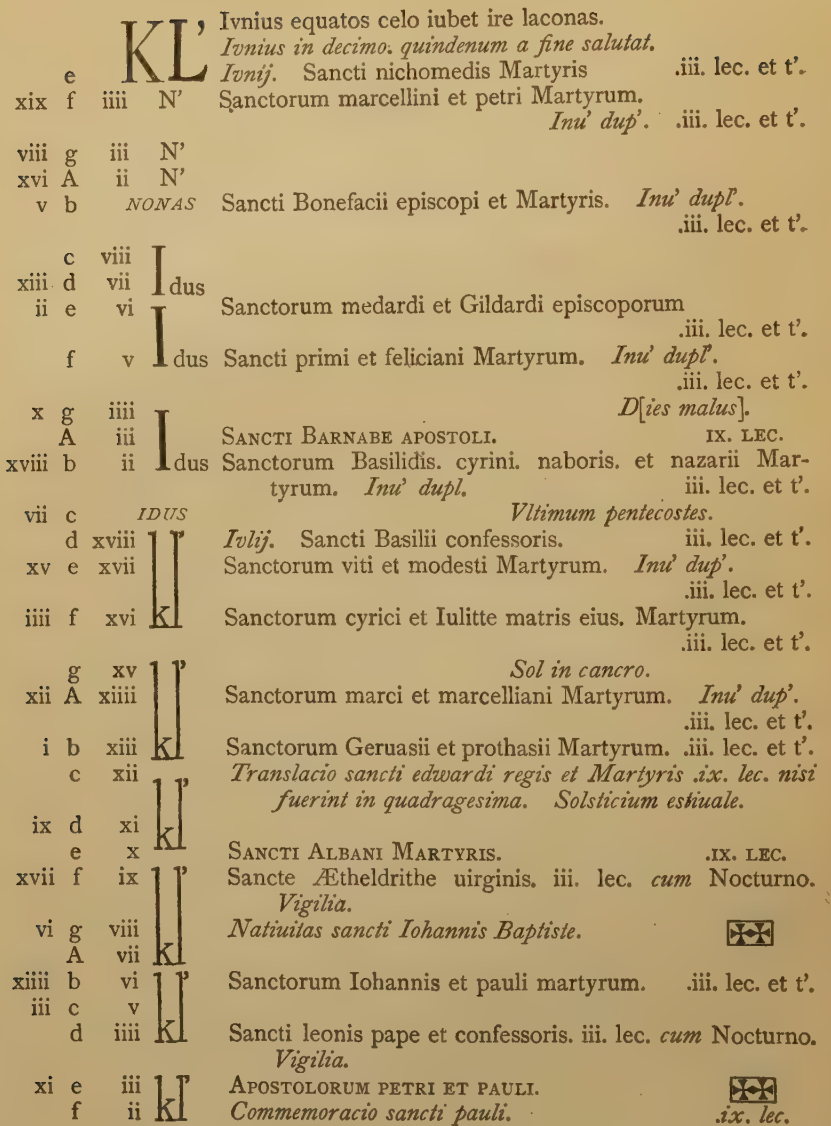 KL’ Ivnius equatos celo iubet ire laconas.
Ivnius in decimo. quindenum a fine salutat.
e Ivnij. Sancti nichomedis Martyris .iii. lec. et t’.
xix f iiii N’ Sanctorum marcellini et petri Martyrum.
Inu’ dup’. .iii. lec. et t’.
viii g iii N’
xvi A ii N’
v b NONAS Sancti Bonefacii episcopi et Martyris. Inu’ dupl’.
.iii. lec. et t’.
c viii
xiii d vii Idus
ii e vi Sanctorum medardi et Gildardi episcoporum
.iii. lec. et t’.
f v Idus Sancti primi et feliciani Martyrum. Inu’ dupl’.
.iii. lec. et t’.
x g iiii D[ies malus].
A iii SANCTI BARNABE APOSTOLI. IX. LEC.
xviii b ii Idus Sanctorum Basilidis. cyrini. naboris. et nazarii Mar-
tyrum. Inu’ dupl. iii. lec. et t’.
vii c IDUS Vltimum pentecostes.
d xviii Ivlij. Sancti Basilii confessoris. iii. lec. et t’.
xv e xvii Sanctorum viti et modesti Martyrum. Inu’ dup’.
.iii. lec. et t’.
iiii f xvi kl’ Sanctorum cyrici et Iulitte matris eius. Martyrum.
.iii. lec. et t’.
g xv Sol in cancro.
xii A xiiii Sanctorum marci et marcelliani Martyrum. Inu’ dup’.
.iii. lec. et t’.
i b xiii kl’ Sanctorum Geruasii et prothasii Martyrum. .iii. lec. et t’.
c xii Translacio sancti edwardi regis et Martyris .ix. lec. nisi
fuerint in quadragesima. Solsticium estiuale.
ix d xi kl’
e x SANCTI ALBANI MARTYRIS. .IX. LEC.
xvii f ix Sancte Ætheldrithe uirginis. iii. lec. cum Nocturno.
Vigilia.
vi g viii Natiuitas sancti Iohannis Baptiste.
A vii kl’
xiiii b vi Sanctorum Iohannis et pauli martyrum. .iii. lec. et t’.
iii c v
d iiii kl’ Sancti leonis pape et confessoris. iii. lec. cum Nocturno.
Vigilia.
xi e iii APOSTOLORUM PETRI ET PAULI.
f ii kl’ Commemoracio sancti pauli. .ix. lec.